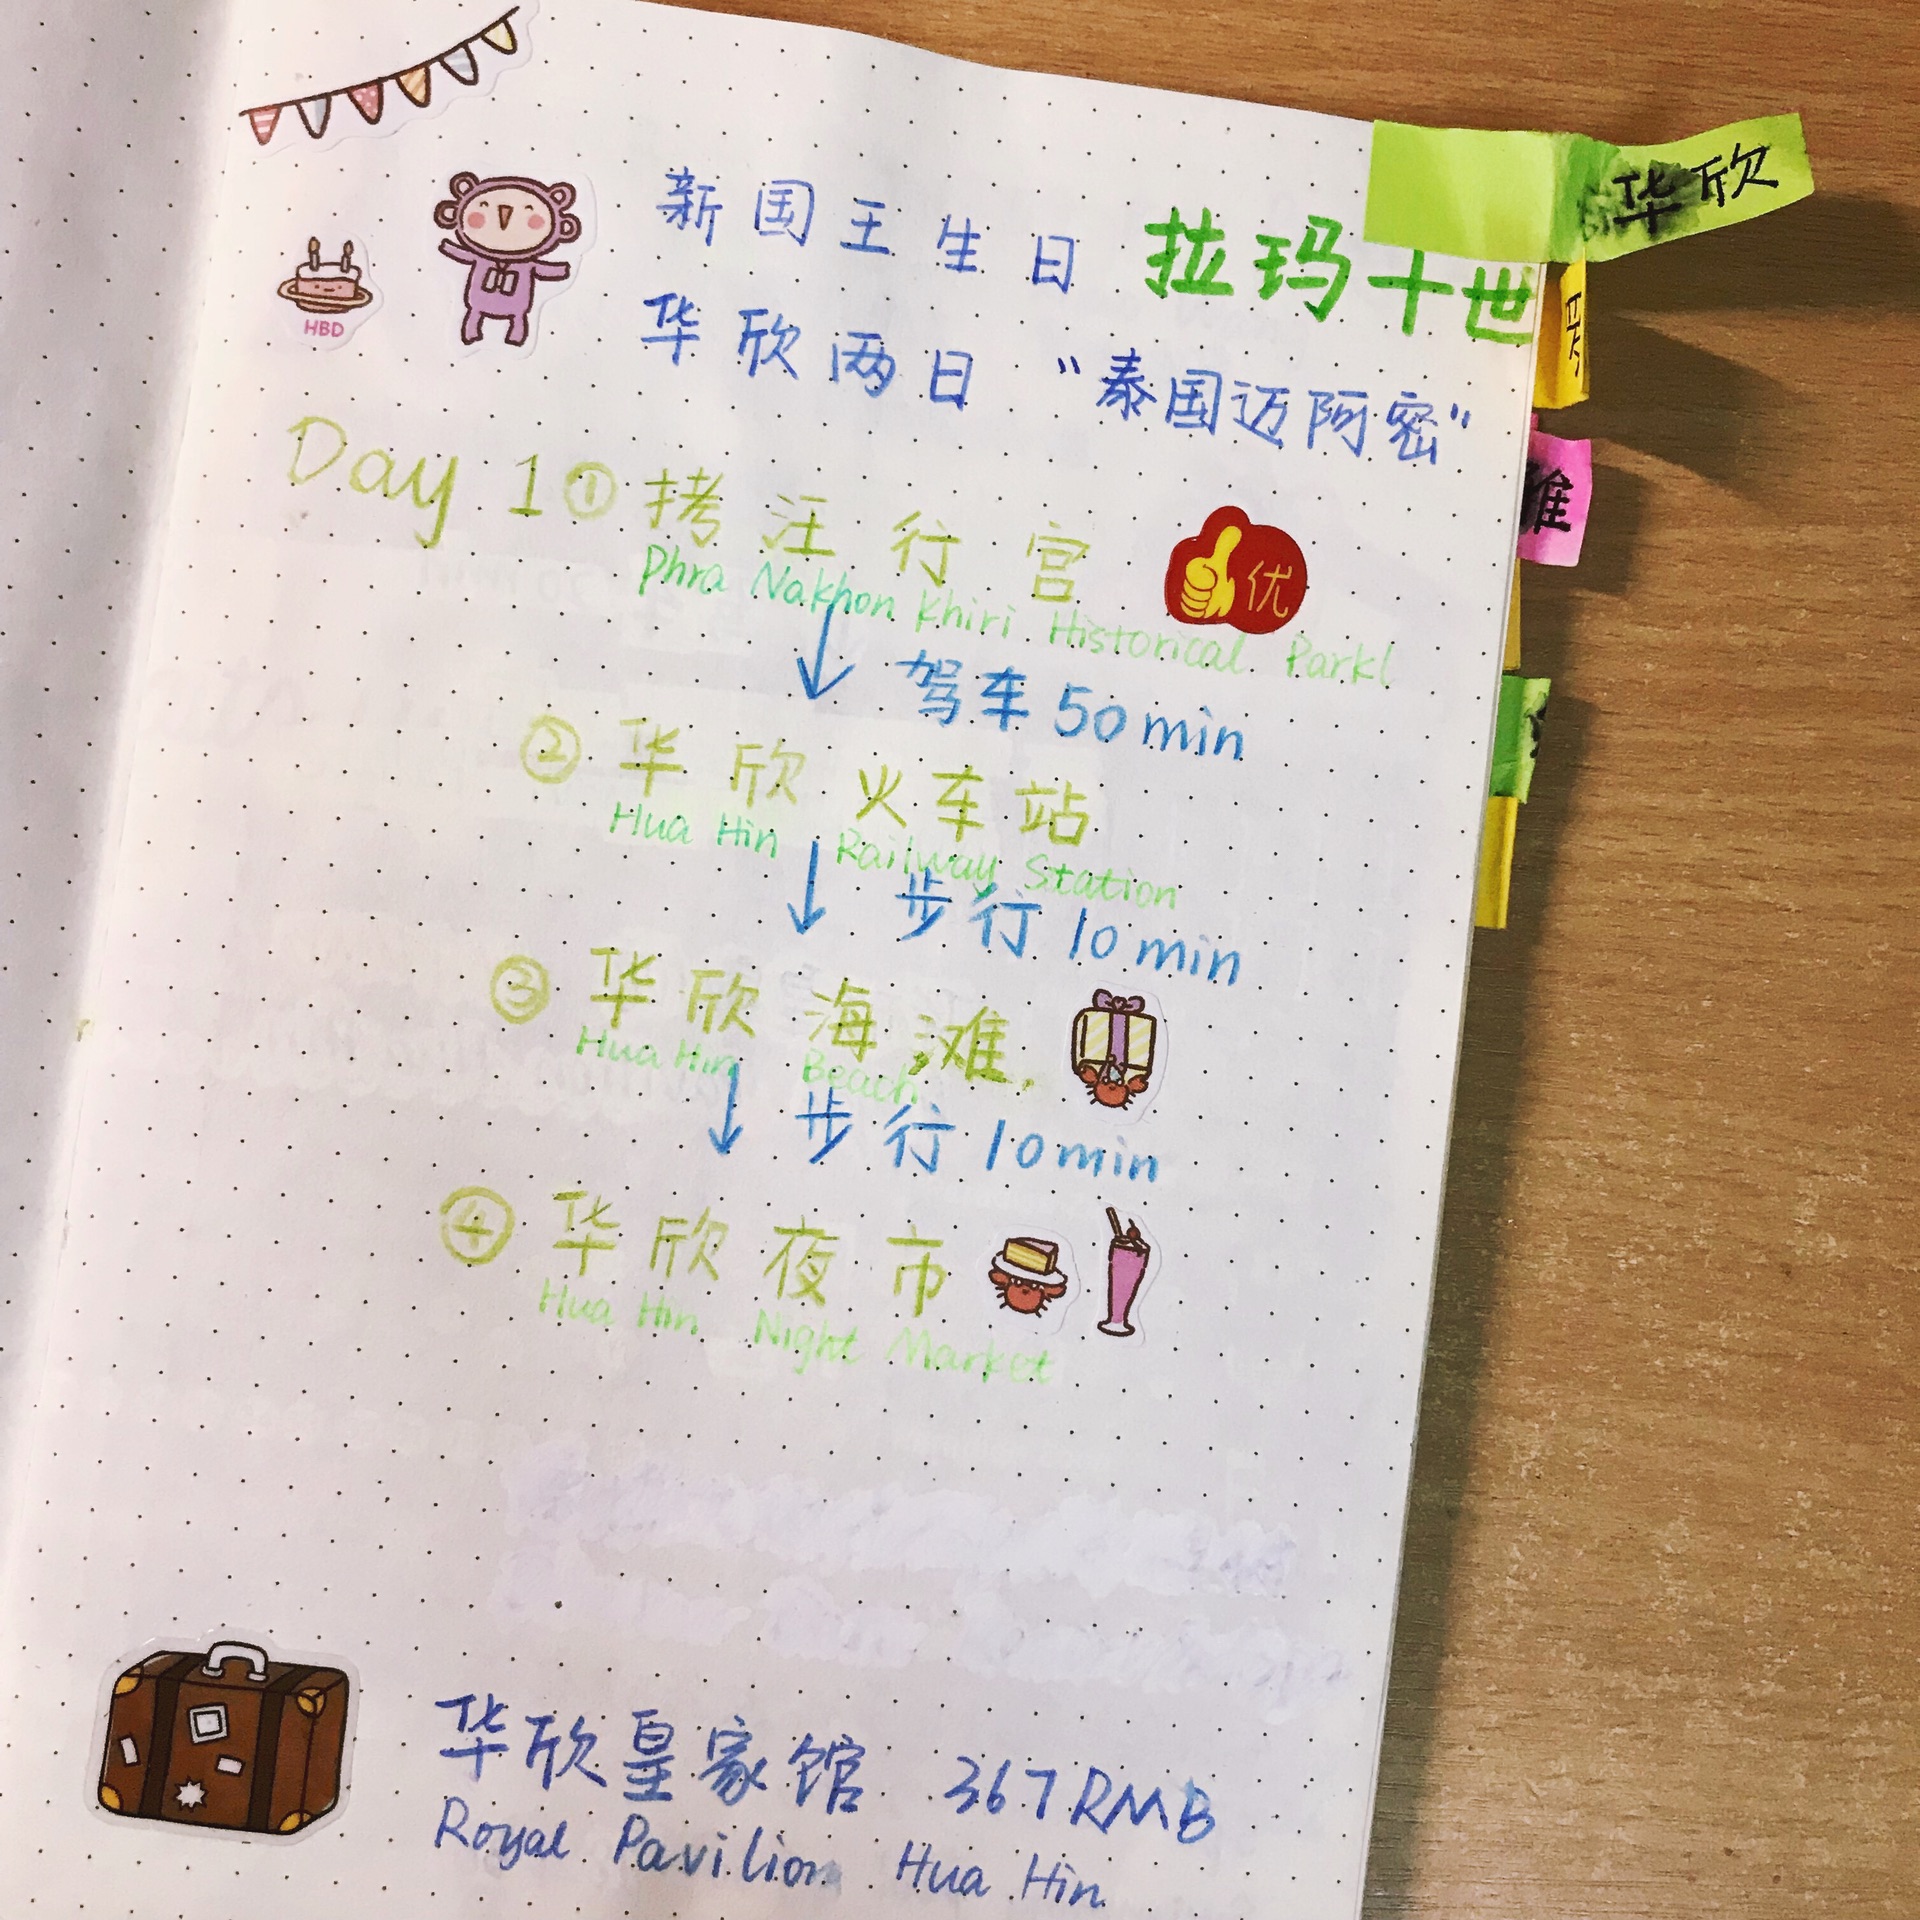 华欣
新国王生日 拉玛十世
HBD
华欣两日 "泰国迈阿密"
Day 1 ① 拷汪行宫
优
Phra Nakhon Khiri Historical Park
驾车 50 min
② 华欣火车站
Hua Hin Railway Station
步行 10 min
③ 华欣海滩
Hua Hin Beach
步行 10 min
④ 华欣夜市
Hua Hin Night Market
华欣皇家馆 367 RMB
Royal Pavilion Hua Hin